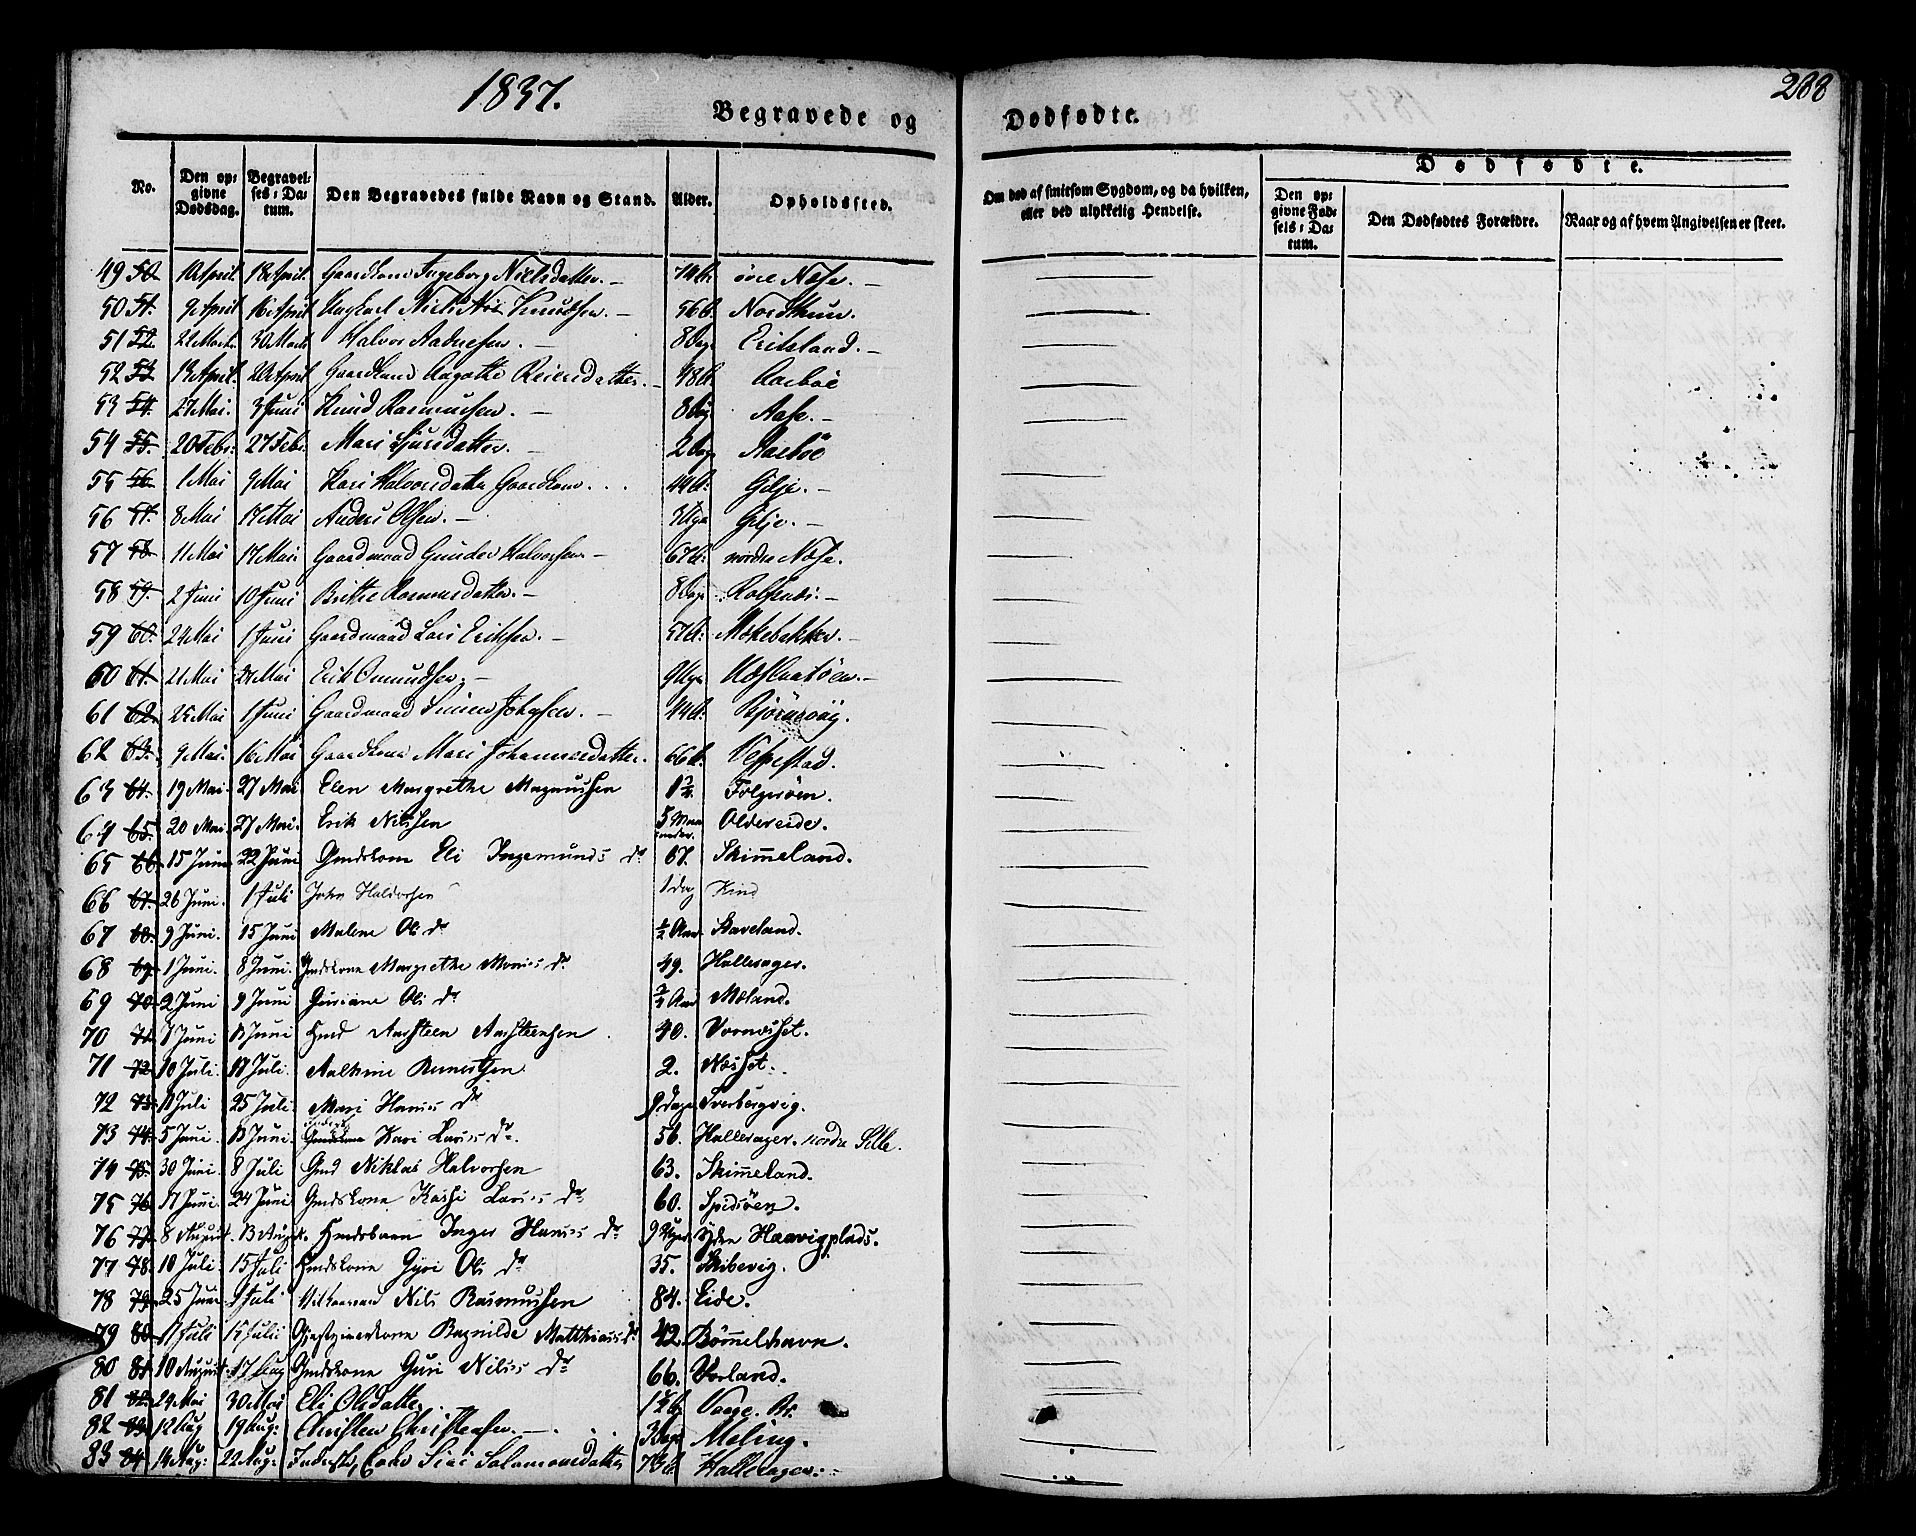 1837.
288
Begravede og Dødfødte.
No. Den opgivne Dødsdag. Begravelses-Datum. Den Begravedes fulde Navn og Stand. Alder. Opholdssted. Om død af smitsom Sygdom, og da hvilken, eller ved ulykkelig Hendelse. Dødfødte. Den opgivne Fødsels-Datum. Den Dødfødtes Forældre. Naar og af hvem Angivelsen er skeet.
49 50. 10 April. 18 April. Gaardkone Ingeborg Nielsdatter. — 74 øvre Næse. —
50 51. 9 April 16 April Niels Knudsen. — 56 Nordthun.
51 52. Marts. 30 Marts Halvor Aadnesen. — 8 Dage Eriksland. —
52 53 April. April Gaardkone Aagothe Reiersdatter. — 48 Aarbøe
53 54. 27 Mai. 3 Juni Knud Rasmussen. — 8 Dage Aase. —
54 55. 20 Febr. 27 Febr. Mari Sjursdatter. — 2 Dage Aarbøe
55 56. 1 Mai 9 Mai Kari Halvorsdatter Gaardkone. Gilje. —
56 57. 8 Mai 17 Mai Anders Olsen. — 3 Uger Gilje. —
57 58. 11 Mai 17 Mai Gaardmand Gunder Halvorsen. — 67 nordre Næse.
58 59. 2 Juni 10 Juni Britte Rasmusdatter. — 8 Dage Rolsnæs. —
59 60. 24 Mai 1 Juni Gaardmand Lars Eriksen. — 57 Møkebakken. —
60 61. 21 Mai Mai Erik Omundsen. — 9 Uger —
61 62. 25 Mai 1 Juni Gaardmand Simen Johnsen. — 44 Bjørnevaag.
62 63. 9 Mai. 16 Mai Gaardkone Mari Johannesdatter. 66 Vespestad.
63 64. 19 Mai. 27 Mai Elen Margrethe Magnussen 1 Folgerøen.
64 65. 20 Mai. 27 Mai. Erik Nilssen 5 Maaneder. Oldereide.
65 66. 15 Juni 22 Juni Gmdskone Eli Ingemunds dr 67. Skimmeland.
66 67. 26 Juni. 1 Juli John Haldorsen 1 dag Kind
67 68. 9 Juni. 15 Juni Malene Ols dr ½ Aar Staveland.
68 69. 1 Juni. 8 Juni. Gmdskone Margrethe Mons dr 49. Hallesager.
69 70. 2 Juni 9 Juni Guriane Ols dr ¾ Aar Mæland.
70 71. 7 Juni 13 Juni Gmd Aasteen Aasteensen . 40. Vornesset.
71 72. 10 Juli. 17 Juli. 2. Næsset.
72 73. 11 Juli 25 Juli. Mari Hans dr 9 dage Sverbergvig.
73 74. 5 Juni. 13 Juni. Inderst Gmdskone Kari Lars dr. 56. Hallesager. nordre Sille.
74 75. 30 Juni. 8 Juli Gmd Niklas Halvorsen 63. Skimmeland.
75 76. 17 Juni. 24 Juni Gmdskone Kassi Lars dr 60. Spidsøen.
76 77. 8 August. 13 August. Gmdsbarn Inger Hans dr 9 Uger Ydre Haavigplads.
77 78. 10 Juli. 15 Juli Gmdskone Gyri Ols dr 35. Skibevig.
78 79. 25 Juni 1 Juli Nils Rasmussen 84. Eide.
79 80. 11 Juli 15 Juli Gjestgiverkone Ragnilde Matthias dr 42. Bømmelhavn.
80 81. 10 August. 17 Aug Gmdskone Guri Nils dr 66. Vorland.
81 82. 24 Mai 30 Mai Eli Olsdatter. 1½ Vaage. Br.
82 83. 12 Aug 19 Aug: Christen Christensen. — 3 Dage Meling.
83 84. 14 Aug: 22 Aug: Inderst, Enke Siri Salamonsdatter 73 Hallesager. —